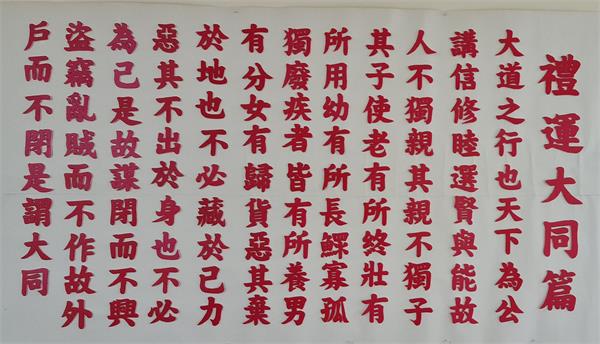 禮運大同篇
大道之行也天下為公
講信修睦選賢與能故
人不獨親其親不獨子
其子使老有所終壯有
所用幼有所長鰥寡孤
獨廢疾者皆有所養男
有分女有歸貨惡其棄
於地也不必藏於己力
惡其不出於身也不必
為己是故謀閉而不興
盜竊亂賊而不作故外
戶而不閉是謂大同